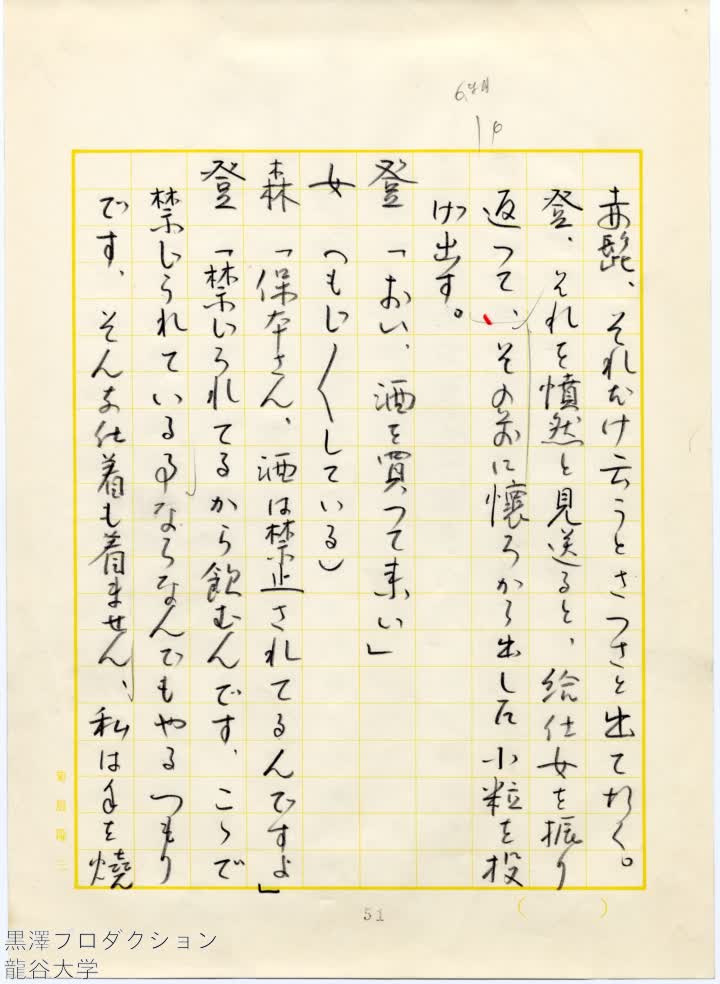 6ヶ月
10
赤髭、それだけ云うとさっさと出て行く。
登、それを憤然と見送ると、給仕女を振り
返って、その前に懐ろから出した小粒を投
げ出す。
登「おい、酒を買って来い」
女（もじ〱している）
森「保本さん、酒は禁止されてるんですよ」
登「禁じられてるから飲むんです、こゝで
禁じられている事ならなんでもやるつもり
です、そんな仕着も着ません、私は手を焼
菊島隆三
51
黒澤プロダクション
龍谷大学